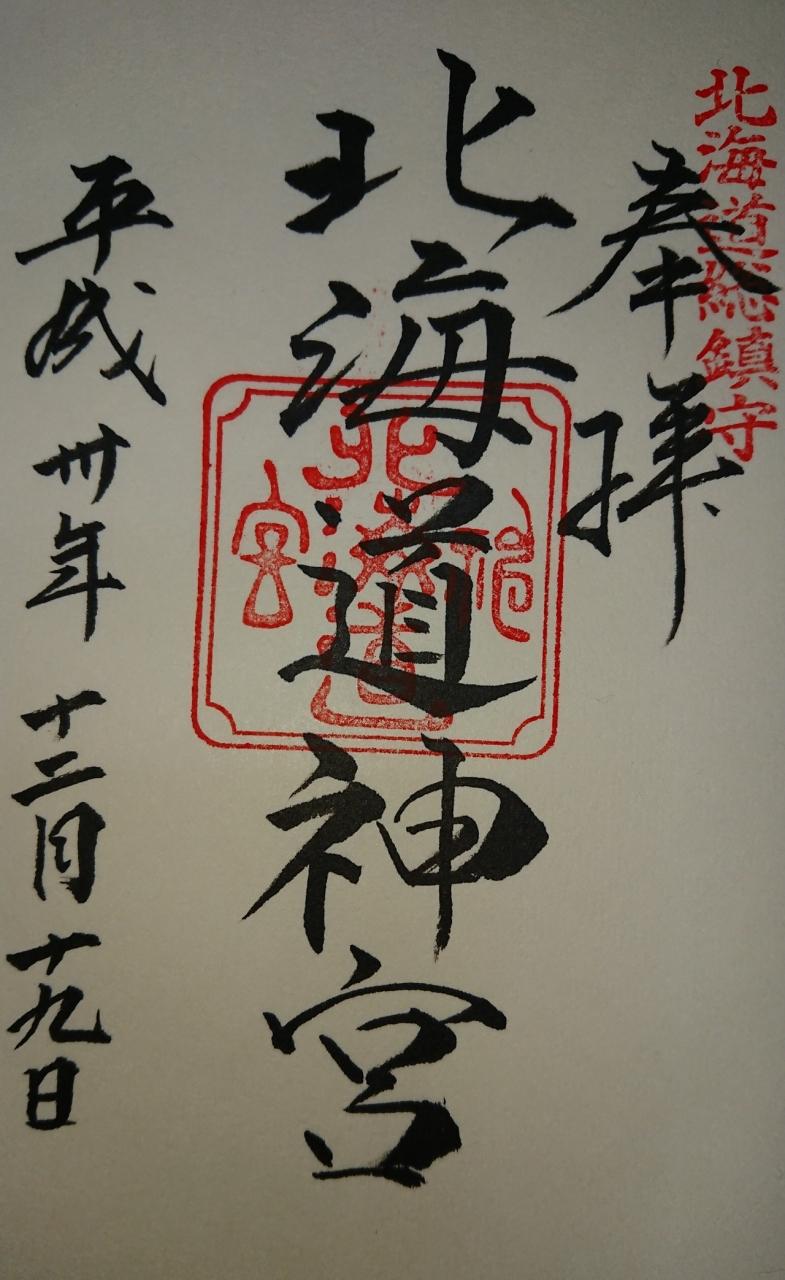 北海道総鎮守
奉拝
北海道神宮
北海道神宮
平成卅年十二月十九日